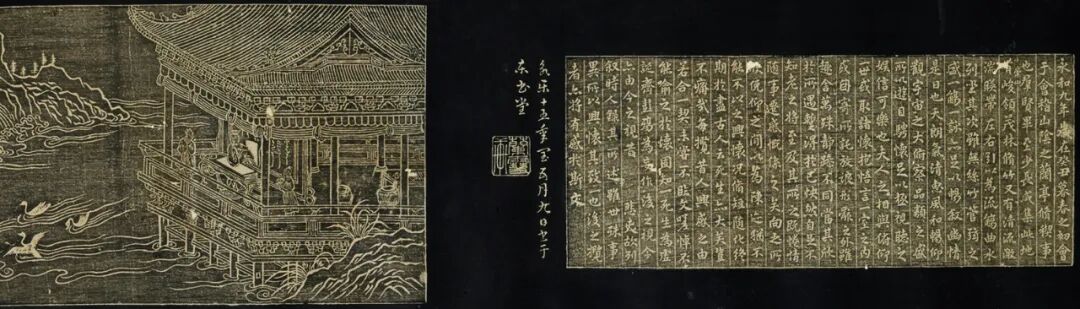 永和九年歲在癸丑暮春之初會
于會稽山陰之蘭亭脩稧事
也羣賢畢至少長咸集此地
有崇山峻領茂林脩竹又有清流激
湍暎帶左右引以為流觴曲水
列坐其次雖無絲竹管弦之
盛一觴一詠亦足以暢敘幽情
是日也天朗氣清惠風和暢仰
觀宇宙之大俯察品類之盛
所以遊目騁懷足以極視聽之
娛信可樂也夫人之相與俯仰
一世或取諸懷抱悟言一室之內
或因寄所託放浪形骸之外雖
趣舍萬殊靜躁不同當其欣
於所遇暫得於己快然自足不
知老之將至及其所之既惓情
隨事遷感慨係之矣向之所
欣俛仰之間以為陳迹猶不
能不以之興懷況脩短隨化終
期於盡古人云死生亦大矣豈
不痛哉每攬昔人興感之由
若合一契未嘗不臨文嗟悼不
能喻之於懷固知一死生為虛
誕齊彭殤為妄作後之視今
亦由今之視昔悲夫故列
敘時人錄其所述雖世殊事
異所以興懷其致一也後之攬
者亦將有感於斯文
永樂十五重五月九日書于
東書堂